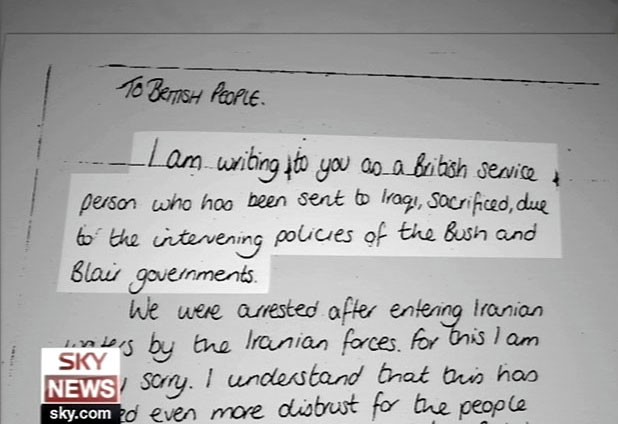 TO BRITISH PEOPLE.
I am writing to you as a British service
person who has been sent to Iraq, sacrificed, due
to the intervening policies of the Bush and
Blair governments.
We were arrested after entering Iranian
waters by the Iranian forces. For this I am
sorry. I understand that this has
even more distrust for the people
SKY
NEWS
sky.com